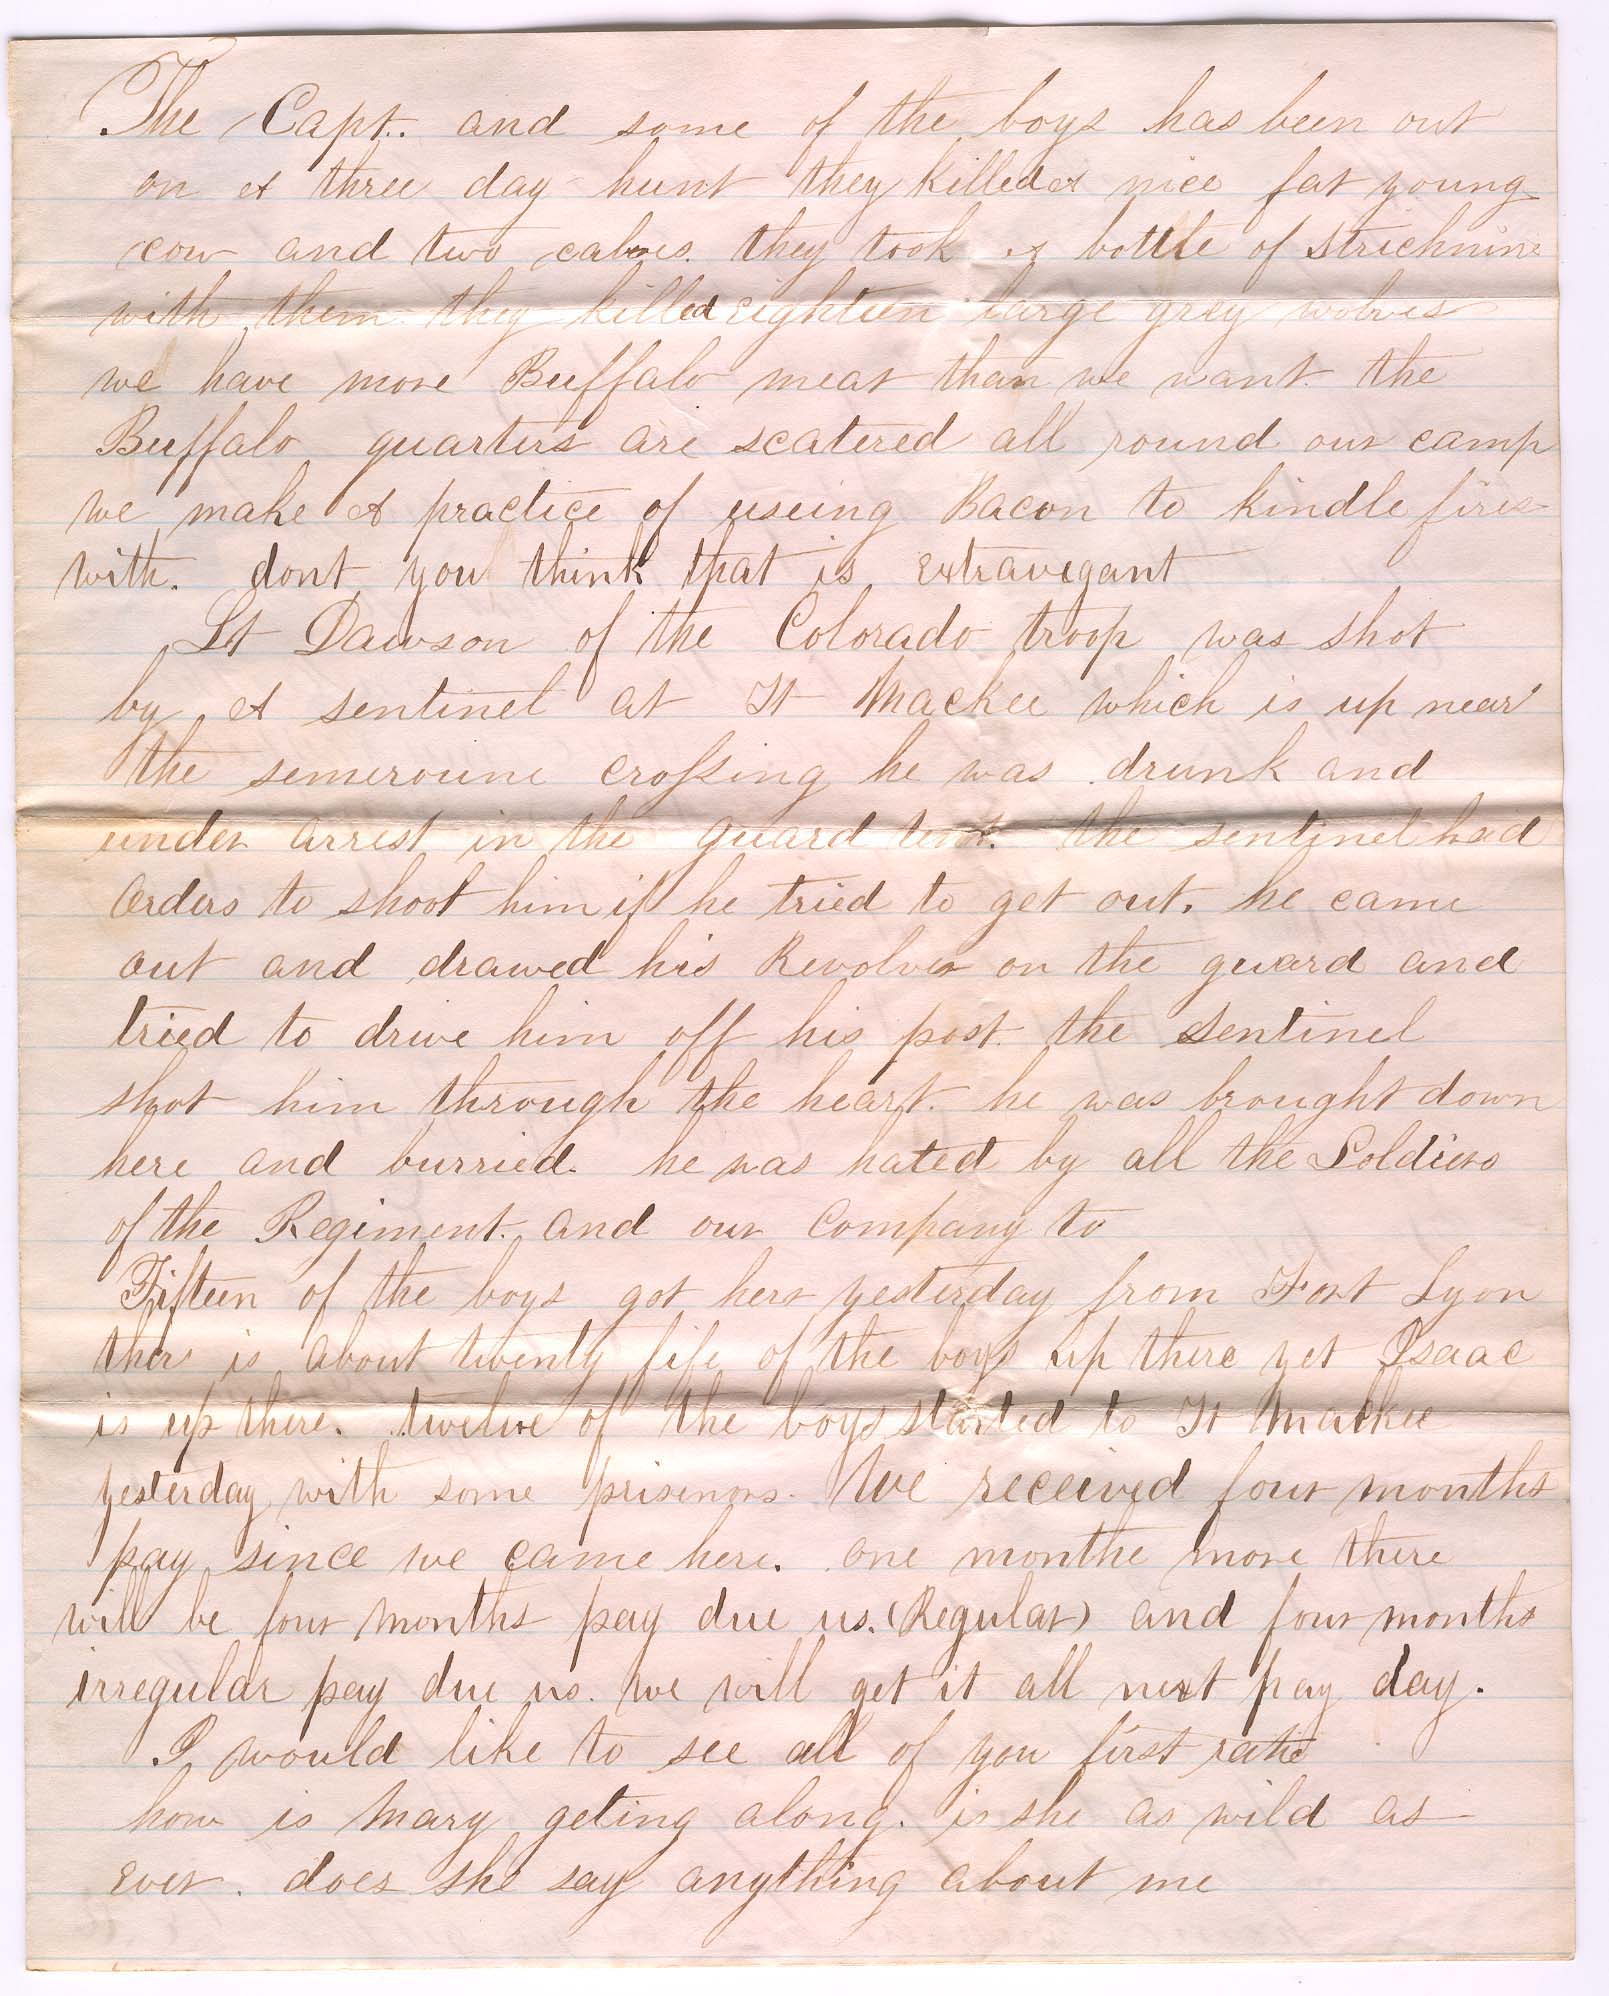 The Capt. and some of the boys has been out
on A three day hunt they killed A nice fat young
cow and two calves. they took A bottle of Strichnine
with them they killed eighteen large grey wolves
we have more Buffalo meat than we want. the
Buffalo quarters are scatered all round our camp
we make A practice of useing Bacon to kindle fires
with. dont you think that is extravegant
Lt Dawson of the Colorado troop was shot
by A sentinel at Ft Mackee which is up near
the semeroune crossing he was drunk and
under arrest in the guard tent. the sentinel had
orders to shoot him if he tried to get out. he came
out and drawed his Revolver on the guard and
tried to drive him off his post. the Sentinel
shot him through the heart. he was brought down
here and burried. he was hated by all the Soldiers
of the Regiment. and our Company to
Fifteen of the boys got here yesterday from Fort Lyon
ther is about twenty fife of the boys up there yet Isaac
is up there. twelve of the boys started to Ft Mackee
yesterday with some prisenors. We received four months
pay since we came here. one monthe more there
will be four months pay due us. (Regular) and four months
irregular pay due us. we will get it all next pay day.
I would like to see all of you first rate
how is Mary geting along. is she as wild as
ever. does she say anything about me